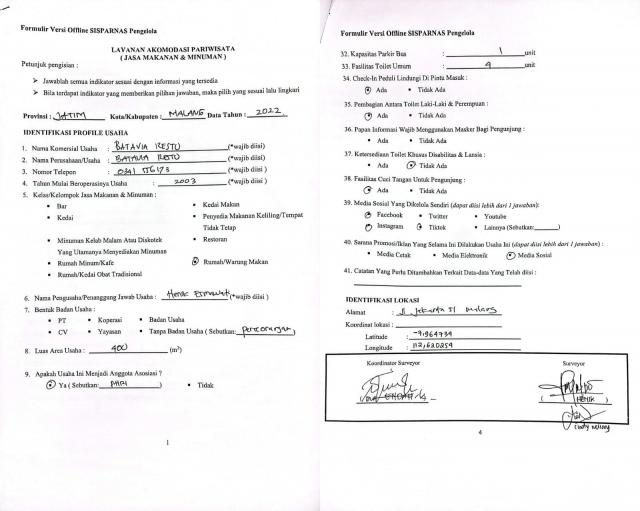 Formulir Versi Offline SISPARNAS Pengelola
LAYANAN AKOMODASI PARIWISATA
( JASA MAKANAN & MINUMAN )
Petunjuk pengisian :
➤ Jawablah semua indikator sesuai dengan informasi yang tersedia
➤ Bila terdapat indikator yang memberikan pilihan jawaban, maka pilih yang sesuai lalu lingkari
Provinsi : JATIM Kota/Kabupaten : MALANG Data Tahun : 2022
IDENTIFIKASI PROFILE USAHA
1. Nama Komersial Usaha : BATAVIA RESTO (*wajib diisi)
2. Nama Perusahaan/Usaha : BATAVIA RESTO (*wajib diisi)
3. Nomor Telepon : 0341 556173 (*wajib diisi )
4. Tahun Mulai Beroperasinya Usaha : 2003 (*wajib diisi )
5. Kelas/Kelompok Jasa Makanan & Minuman :
• Bar • Kedai Makan
• Kedai • Penyedia Makanan Keliling/Tempat
Tidak Tetap
• Minuman Kelab Malam Atau Diskotek • Restoran
Yang Utamanya Menyediakan Minuman
• Rumah Minum/Kafe • Rumah/Warung Makan
• Rumah/Kedai Obat Tradisional
6. Nama Pengusaha/Penanggung Jawab Usaha : (*wajib diisi )
7. Bentuk Badan Usaha :
• PT • Koperasi • Badan Usaha
• CV • Yayasan • Tanpa Badan Usaha ( Sebutkan: Perorangan)
8. Luas Area Usaha : 400 (m²)
9. Apakah Usaha Ini Menjadi Anggota Asosiasi ?
• Ya ( Sebutkan: PHRI ) • Tidak
1
Formulir Versi Offline SISPARNAS Pengelola
32. Kapasitas Parkir Bus : 1 unit
33. Fasilitas Toilet Umum : 4 unit
34. Check-In Peduli Lindungi Di Pintu Masuk :
• Ada • Tidak Ada
35. Pembagian Antara Toilet Laki-Laki & Perempuan :
• Ada • Tidak Ada
36. Papan Informasi Wajib Menggunakan Masker Bagi Pengunjung :
• Ada • Tidak Ada
37. Ketersediaan Toilet Khusus Disabilitas & Lansia :
• Ada • Tidak Ada
38. Fasilitas Cuci Tangan Untuk Pengunjung :
• Ada • Tidak Ada
39. Media Sosial Yang Dikelola Sendiri (dapat diisi lebih dari 1 jawaban):
• Facebook • Twitter • Youtube
• Instagram • Tiktok • Lainnya (Sebutkan: )
40. Sarana Promosi/Iklan Yang Selama Ini Dilakukan Usaha Ini (dapat diisi lebih dari 1 jawaban) :
• Media Cetak • Media Elektronik • Media Sosial
41. Catatan Yang Perlu Ditambahkan Terkait Data-data Yang Telah diisi :
IDENTIFIKASI LOKASI
Alamat : Jl Jakarta 51 Malang
Koordinat lokasi :
Latitude : -7,964739
Longitude : 112,620259
Koordinator Surveyor Surveyor
4